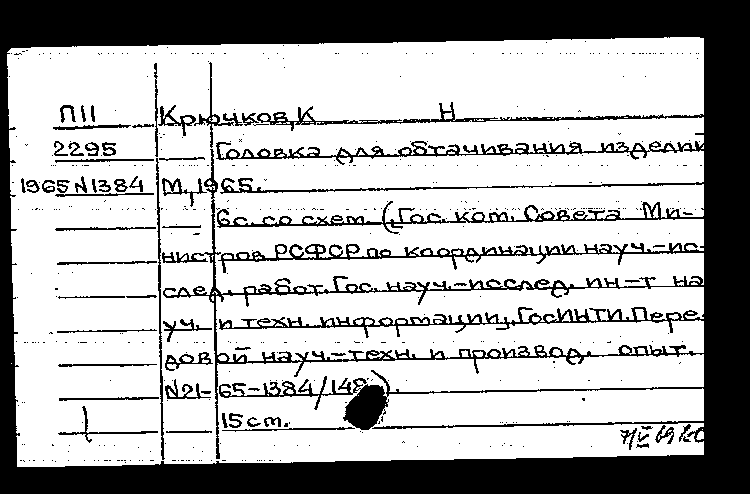 П11 Крючков, К Н
2295 Головка для обтачивания изделий
1965 N1384 М., 1965.
6с. со схем. (Гос. ком. Совета Ми-
нистров РСФСР по координации науч.-ис-
след. работ. Гос. науч.-исслед. ин-т на
уч. и техн. информации, ГосИНТИ. Пере
довой науч.-техн. и производ. опыт.
N21-65-1384/148).
15 cm.